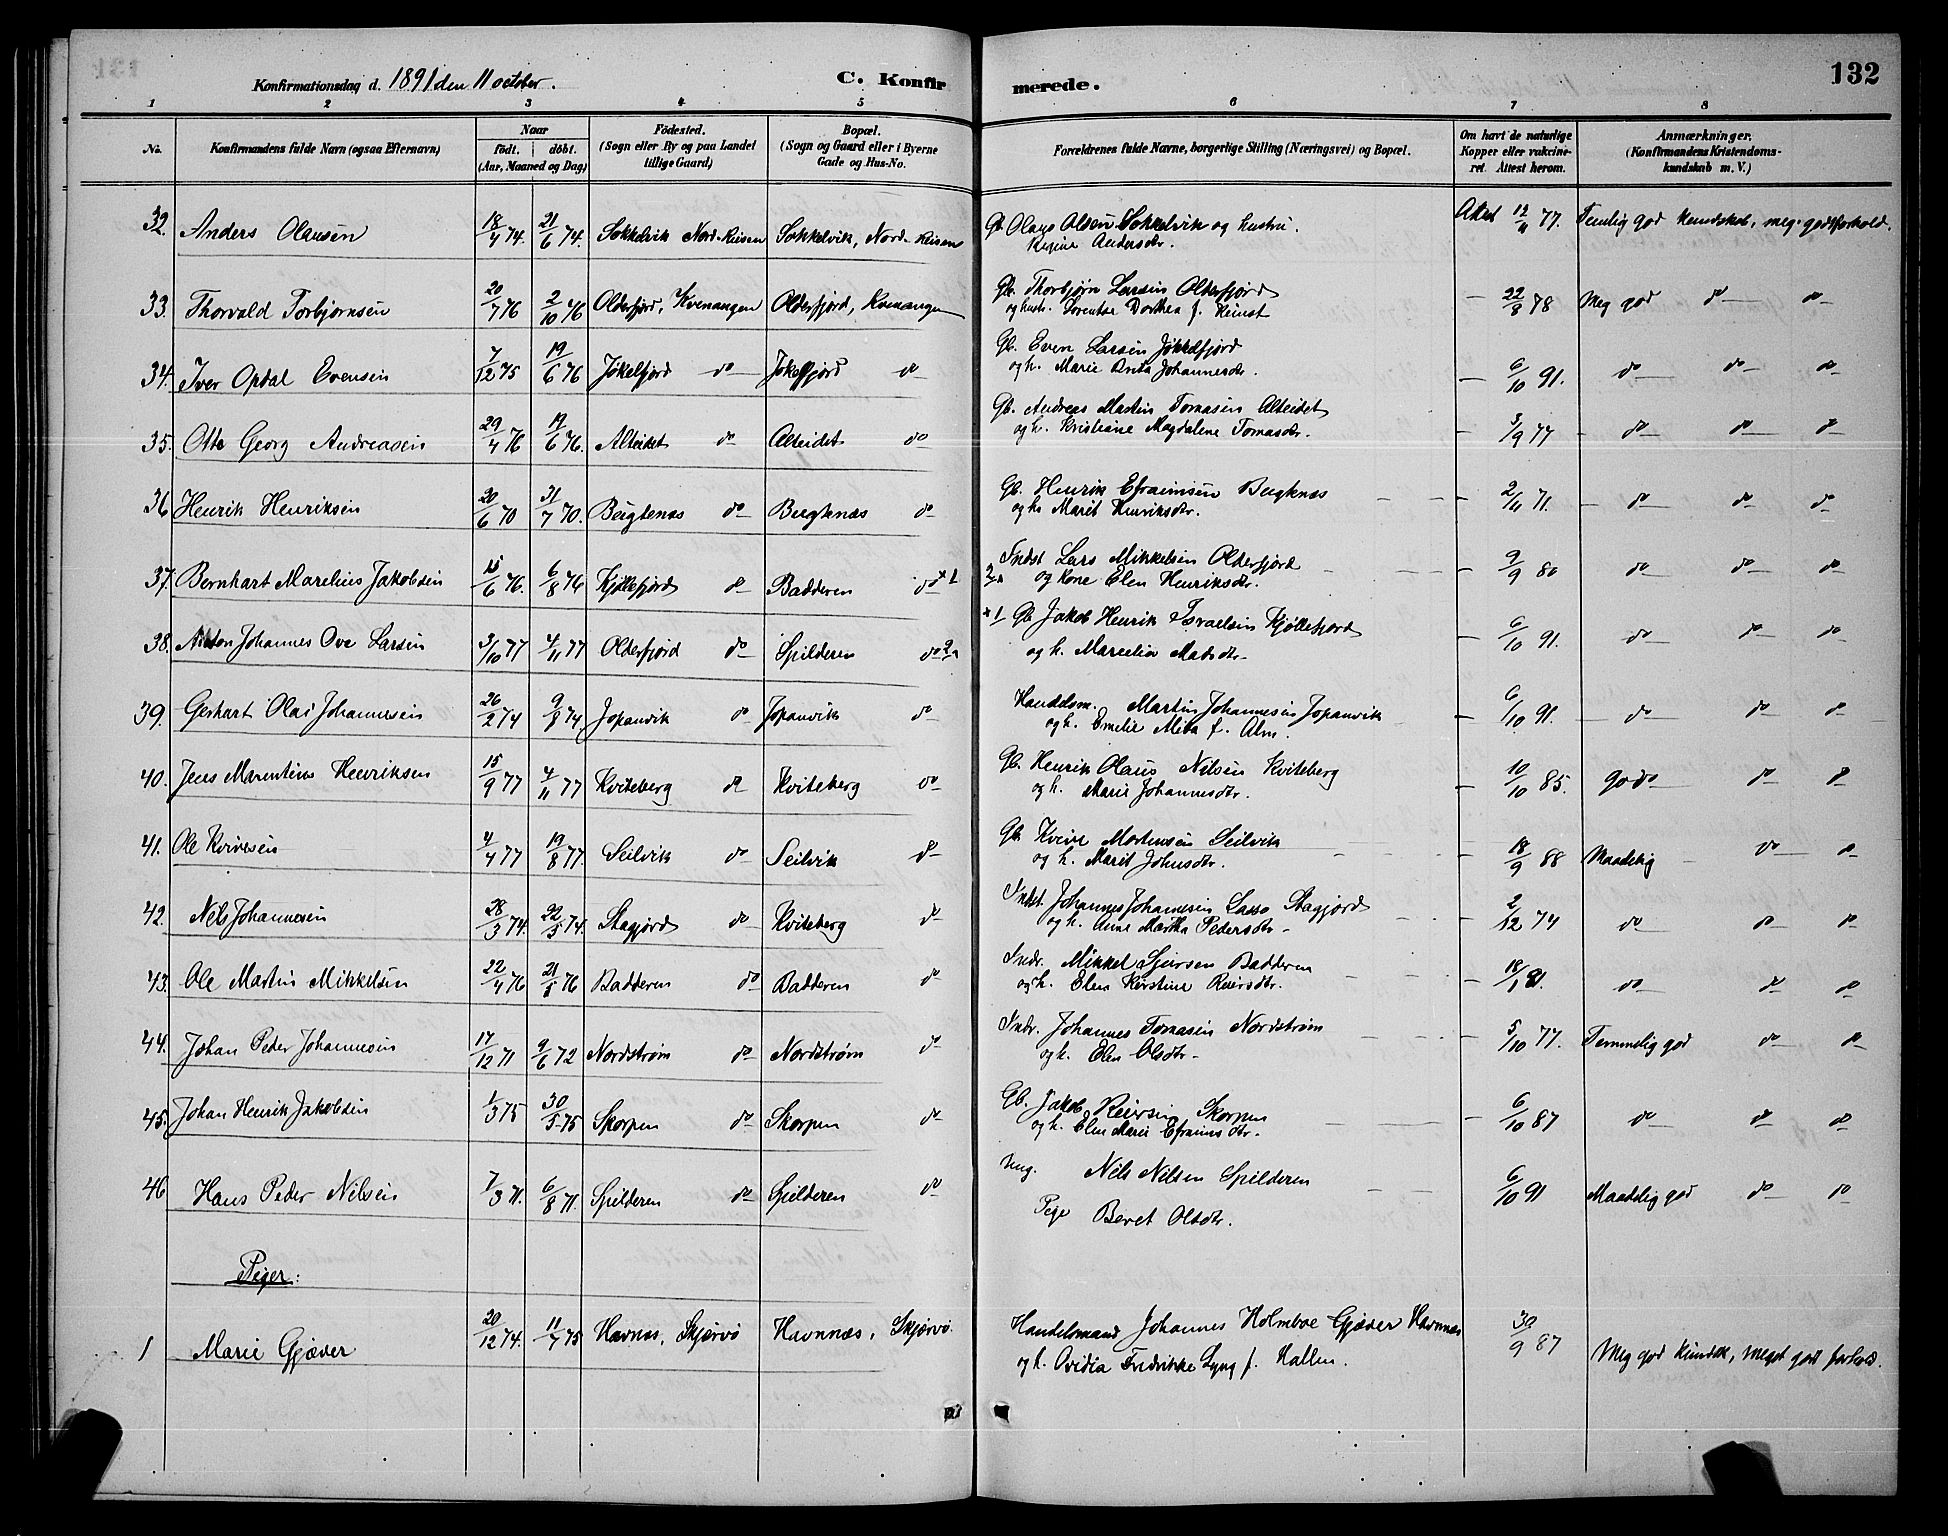 Konfirmationsdag d. 1891 den 11 october.
C. Konfir
merede.
132
1 2 3 4 5 6 7 8
No.
Konfirmandens fulde Navn (ogsaa Efternavn)
Naar
født. døbt.
(Aar, Maaned og Dag)
Fødested.
(Sogn eller By og paa Landet
tillige Gaard)
Bopæl.
(Sogn og Gaard eller i Byerne
Gade og Hus-No.
Forældrenes fulde Navne, borgerlige Stilling (Næringsvei) og Bopæl.
Om havt de naturlige
Kopper eller vakcine-
ret. Attest herom.
Anmærkninger.
(Konfirmandens Kristendoms-
kundskab m. V.)
32. Anders Olausen 18/4 74. 21/6 74. Sokkelvik Nord-Reisen Sokkelvik, Nord-Reisen Gb. Olaus Olsen Sokkelvik og hustru. 12/11 77.
Regine Andersdtr.
33. Thorvald Torbjørnsen 20/7 76 2/10 76 Olderfjord, Kvenangen Olderfjord, Kvenangen Gb. Thorbjørn Larsen Olderfjord — 22/8 78 Meg god do do
og hustr. Lorentse Dorthea f.
34. Iver Opdal Evensen 7/12 75 19/6 76 Jøkelfjord do Jøkelfjord do Gb. Even Larsen Jøkkelfjord — 6/10 91. do do do
og h. Marie Johannesdtr.
35. Otto Georg Andreasen 29/4 76 /6 76. Alteidet do Alteidet do Gb. Andreas Martin Tomasen Alteidet — 3/9 77 do do do
og h. Kristiane Magdalene Tomasdtr.
36 Henrik Henriksen 20/6 70 31/7 70. do do Gb. Henrik Efraimsen — 2/11 71. do do do
og h. Marit Henriksdtr.
37. Bernhart Marelius Jakobsen 15/6 76. 6/8 76 Kjøllefjord do Badderen do +1 Indst Lars Mikkelsen Olderfjord 9/9 80 do do do
og kone Elen Henriksdtr.
38. Anton Johannes Ove Larsen 3/10 77 4/11 77 Olderfjord do Spilderen do +1 Gb. Jakob Henrik Israelsen Kjøllefjord — 6/10 91. do do do
og h. Marcelia Matsdtr.
39. Gerhart Olai Johannesen 26/2 74 9/8 74. Jopanvik do Jopanvik do Handelsm. Martin Johannesen Jopanvik — 6/10 91. do do do
og h. Emelie Meta f. Alm.
40. Jens Marentius Henriksen 15/9 77 4/11 77 Kviteberg do Kviteberg do Gb. Henrik Olaus Nilsen Kviteberg — 10/10 85. god do do
og h. Marie Johannesdtr.
41. Ole Kvivesen 4/4 77 19/8 77. Seilvik do Seilvik do Gb. Kveive Mortensen Seilvik — 18/9 88 Maadelig do do
og h. Marit Johnsdtr.
42. Nils Johannesen 28/3 74. 22/5 74. Stagjord do Kviteberg do Indst. Johannes Johannesen Lasso Stagjord 2/12 74 do do do
og h. Anne Martha Pedersdtr.
43. Ole Martin Mikkelsen 22/4 76 21/5 76 Badderen do Badderen do Indr. Mikkel Sjursen Badderen — 18/1 81. do do do
og h. Elen Kirstine Reiersdtr.
44. Johan Peder Johannesen 17/12 71 9/6 72 Nordstrøm do Nordstrøm do Indr. Johannes Tomasen Nordstrøm — 5/10 77. Temmelig god do do
og h. Elen Olsdtr.
45. Johan Henrik Jakobsen 1/3 75 30/5 75 Skorpen do Skorpen do Gb. Jakob Reiersen Skorpen — 6/10 87 do do do
og h. Elen Marie Efraimsdtr.
46 Hans Peder Nilsen 7/3 71. 6/8 71. Spilderen do Spilderen do Ung. Nils Nilsen Spilderen 6/10 91 Maadelig god do do
Pige Beret Olsdtr.
Piger:
1 Marie Gjæver 20/12 74. 11/7 75 Havnes, Skjervø Havnnæs, Skjervø. Handelsmand Johannes Holmboe Gjæver Havnnæs 30/9 87 Meg god kundsk, meget godt forhold.
og h. Ovidia Fredrikke Lyng f. Hallen.